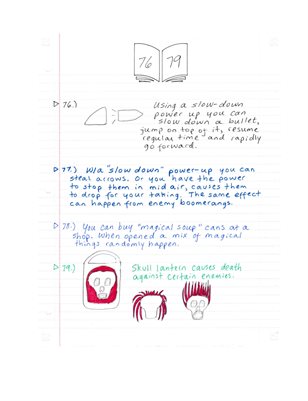 76 79
76.) Using a slow-down
power up you can
slow down a bullet,
jump on top of it, resume
regular time and rapidly
go forward.
77.) W/a "slow down" power-up you can
steal arrows. Or you have the power
to stop them in mid air, causes them
to drop for your taking. The same effect
can happen from enemy boomerangs.
78.) You can buy "magical soup" cans at a
shop. When opened a mix of magical
things randomly happen.
79.) Skull lantern causes death
against certain enemies.